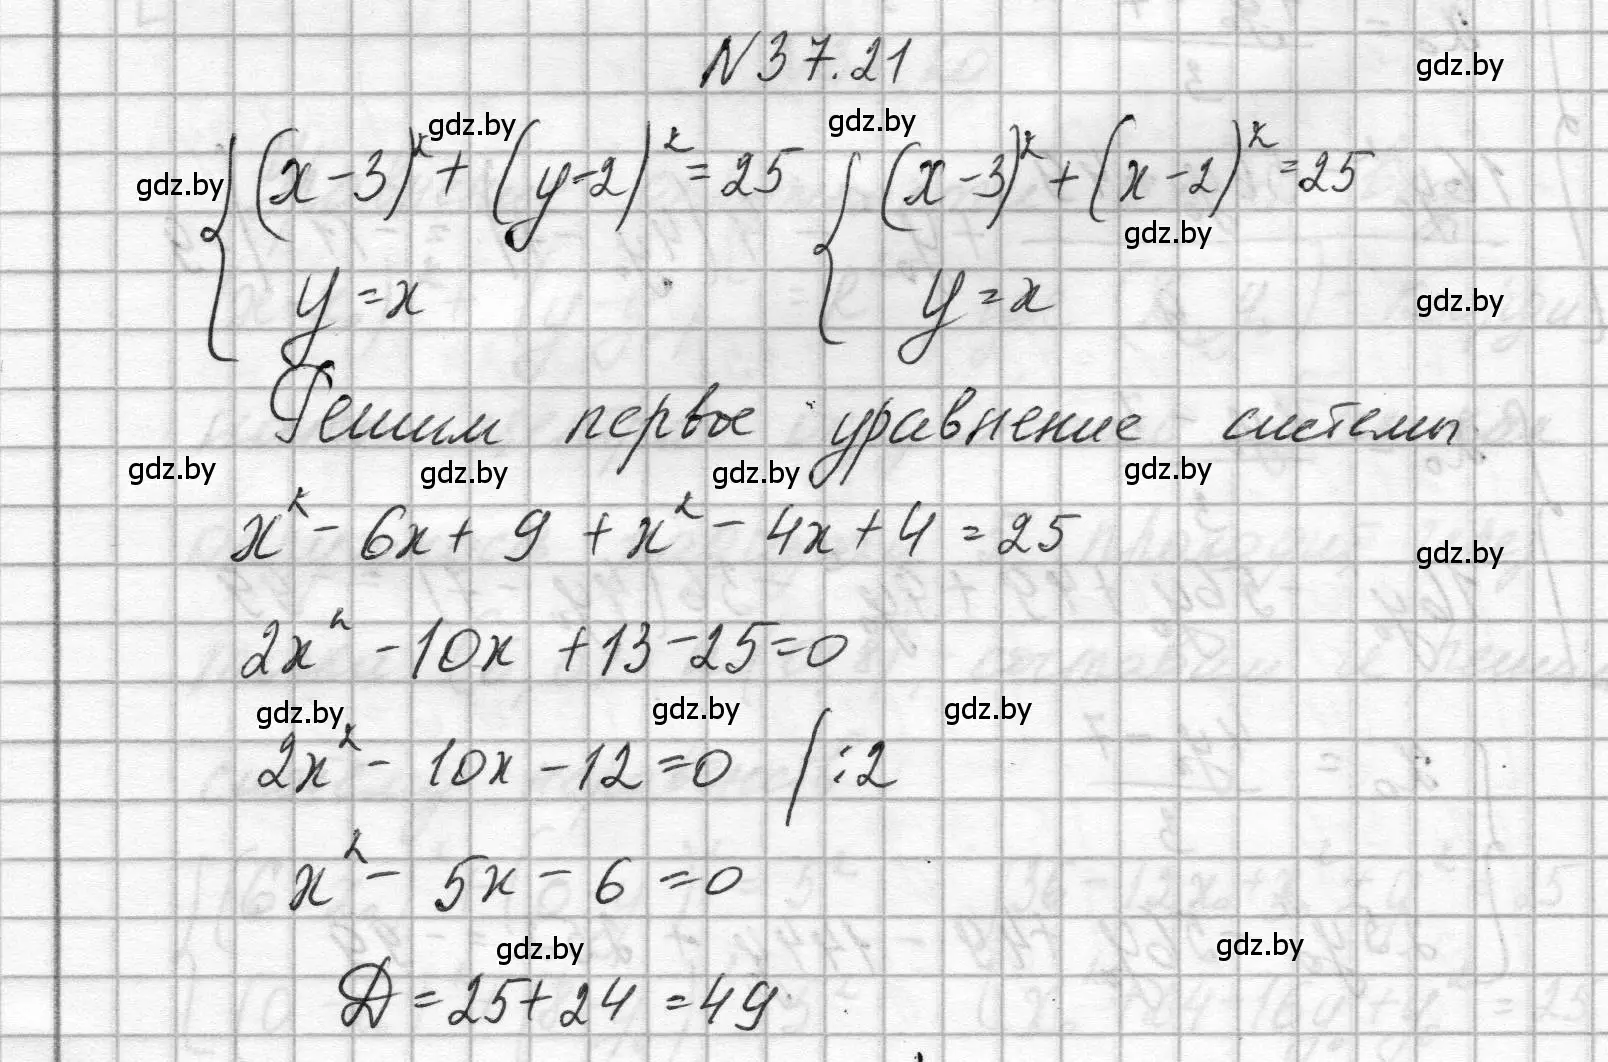 N 37.21
gdz.by
gdz.by gdz.by
gdz.by { (x-3)² + (y-2)² = 25 { (x-3)² + (x-2)² = 25
gdz.by
y = x y = x gdz.by
Решим первое уравнение системы
gdz.by gdz.by gdz.by gdz.by
x² - 6x + 9 + x² - 4x + 4 = 25
gdz.by
2x² - 10x + 13 - 25 = 0
gdz.by gdz.by gdz.by
2x² - 10x - 12 = 0 | :2
x² - 5x - 6 = 0
gdz.by gdz.by
Д = 25 + 24 = 49